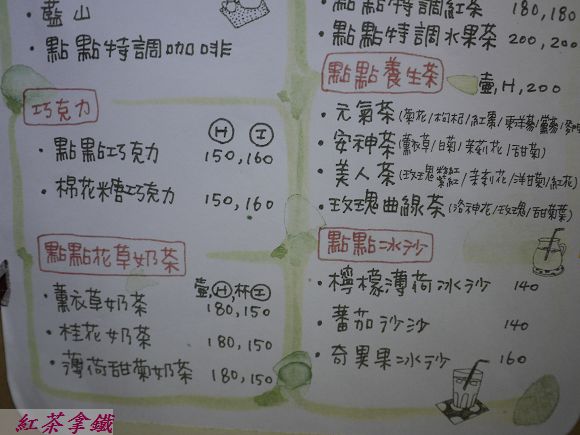 藍山
點點特調咖啡
巧克力
H I
點點巧克力 150,160
棉花糖巧克力 150,160
點點花草奶茶
壺,H,杯I
薰衣草奶茶 180,150
桂花奶茶 180,150
薄荷甜菊奶茶 180,150
點點特調紅茶 180,180
點點特調水果茶 200,200
點點養生茶 壺,H,200
元氣茶(菊花/枸杞/紅棗/東洋蔘/黨蔘/
安神茶(薰衣草/白菊/茉莉花/甜菊)
美人茶(玫瑰/紫紅/茉莉花/洋甘菊/紅花)
玫瑰曲線茶(洛神花/玫瑰/甜菊葉)
點點冰沙
檸檬薄荷冰沙 140
蕃茄沙沙 140
奇異果冰沙 160
紅茶拿鐵